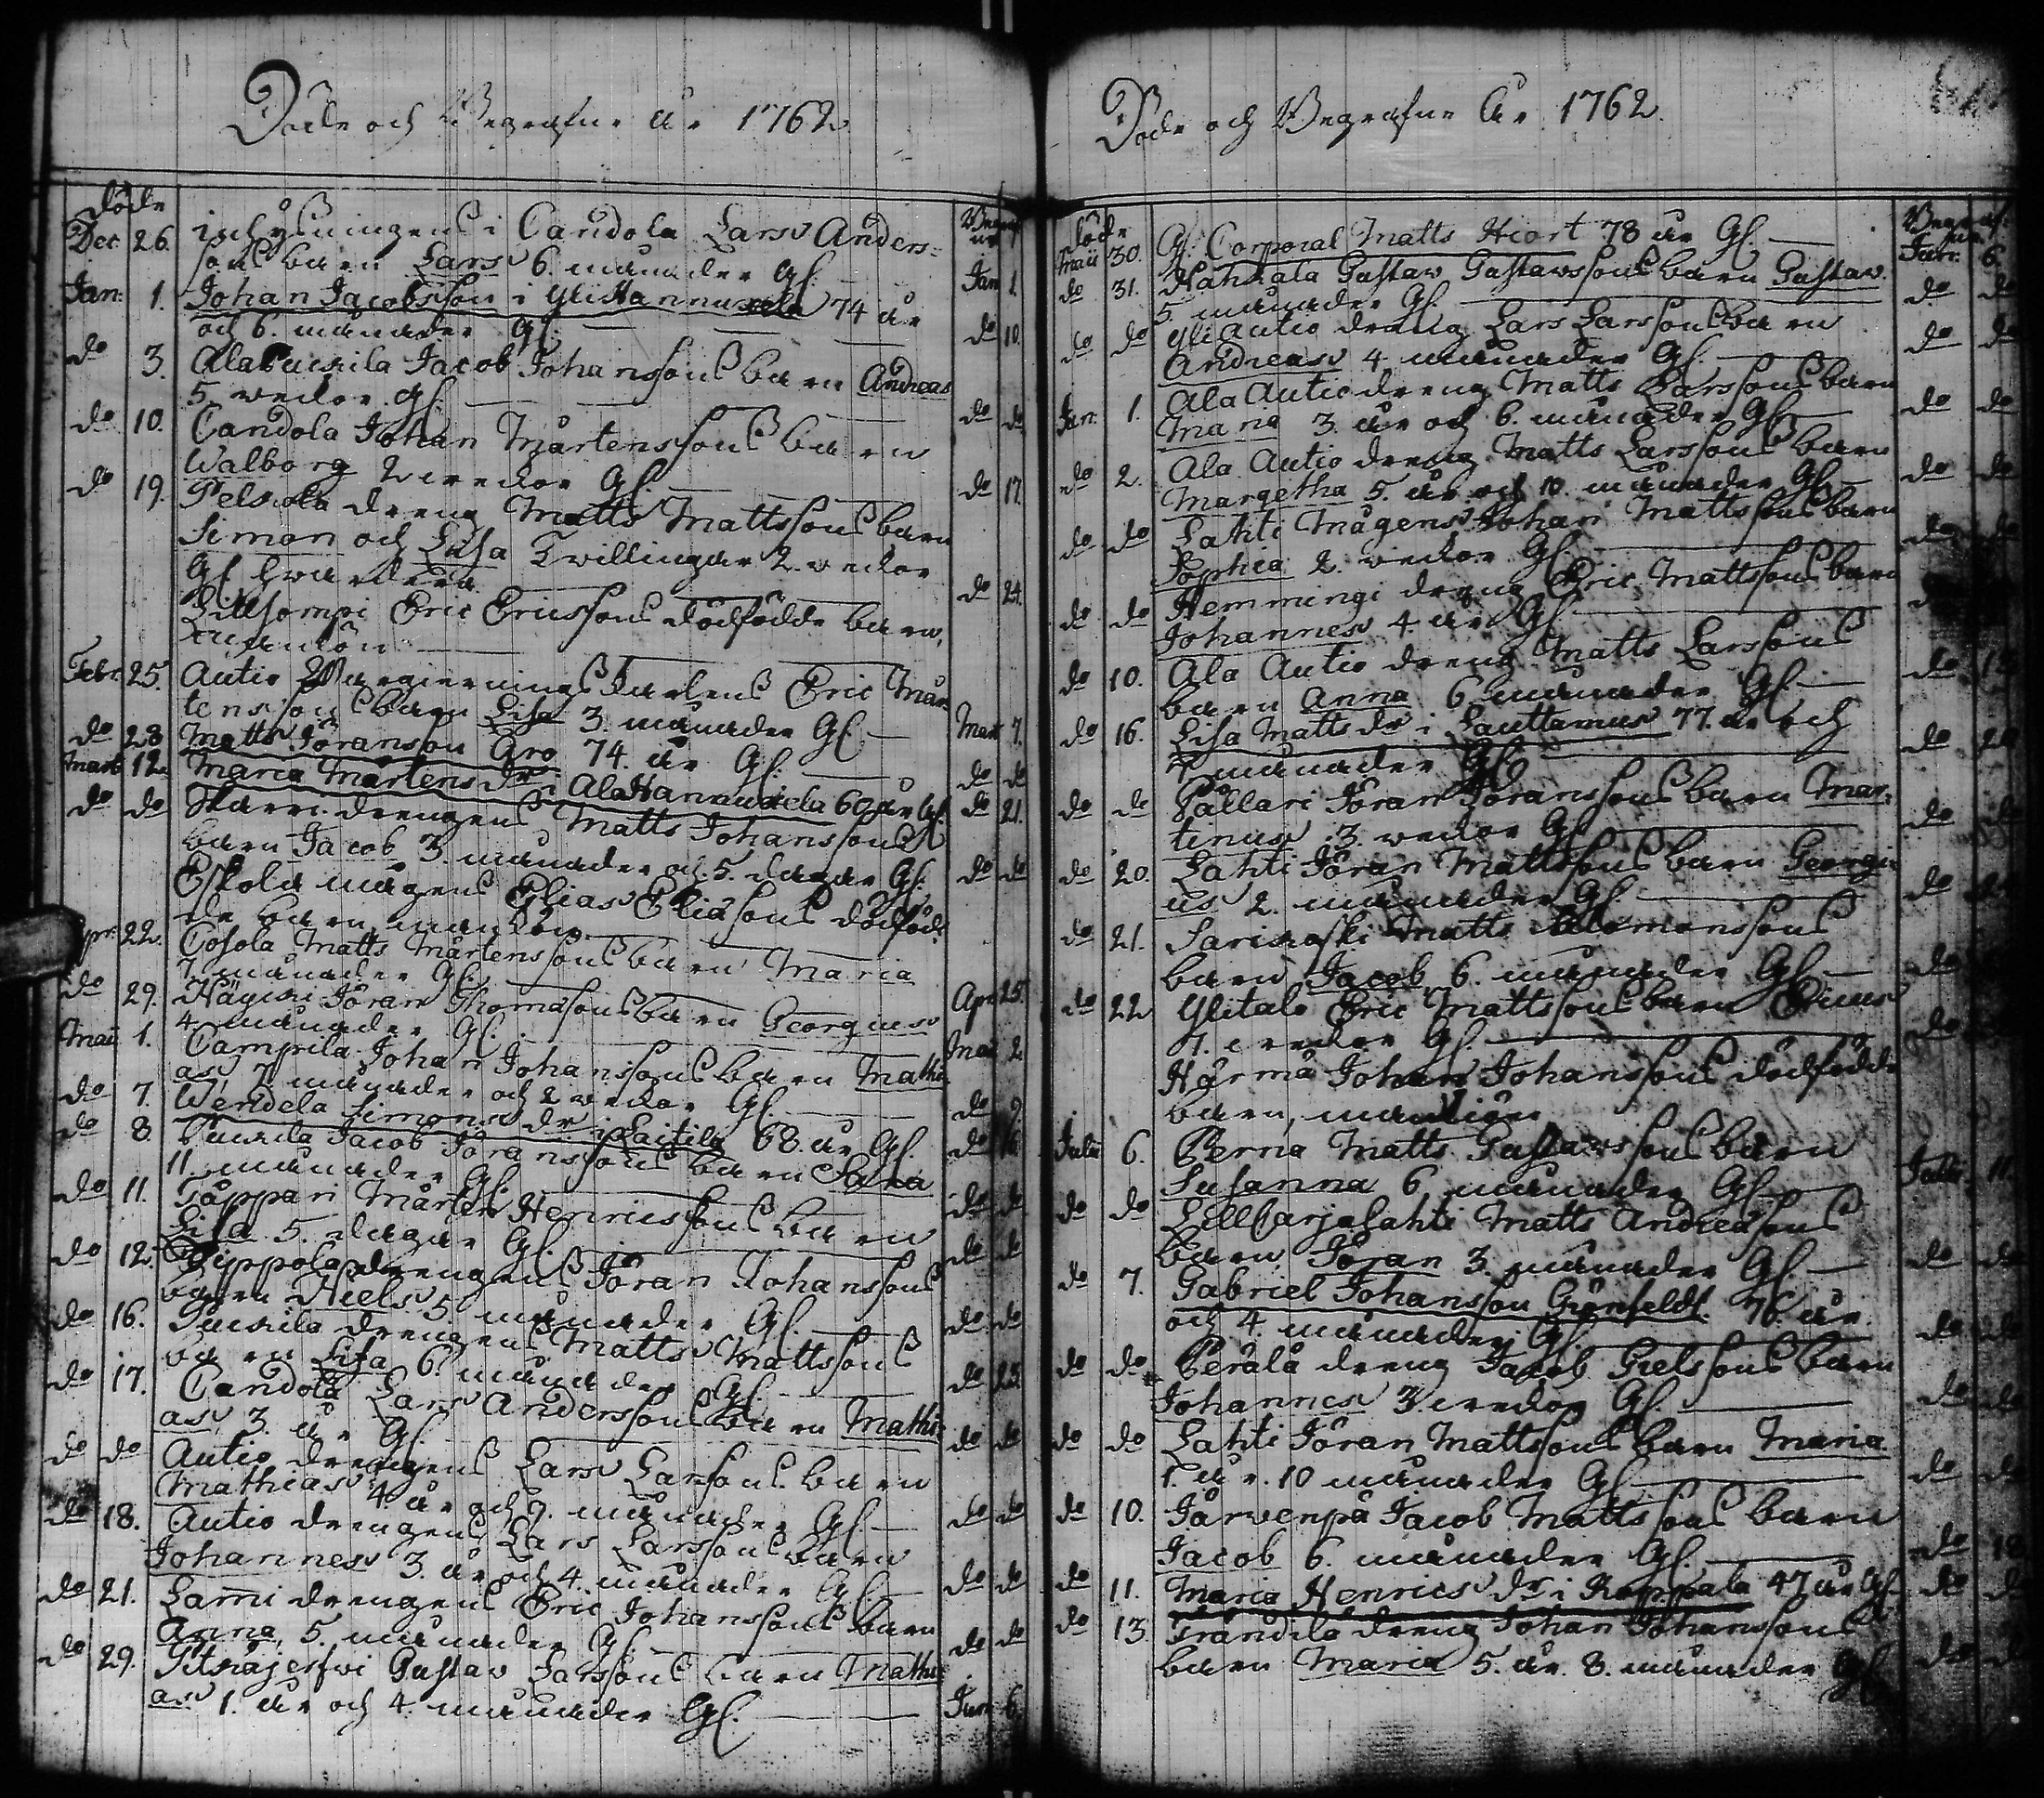 Döde och Begrafne År 1762
döde
Begrafne
Dec. 26. inhysningens i Candola Lars Anders=
sons barn Lars 6. månader Gl. Jan 1.
Jan: 1. Johan Jacobsson i YliHannuxela 74 år
och 6. månader Gl. do 10.
do 3. AlaPuckila Jacob Johanssons barn Andreas
5. weckor Gl. do do
do 10. Candola Johan Mårtenssons barn
Walborg 2 weckor Gl. do 17.
do 19. Pelkola dreng Matts Mattssons barn
Simon och Lisa Twillingar 2. weckor
Gl. hwardera do 24.
Lillsompi Eric Ericssons dödfödde barn,
Febr. 25. Autio Eric Mår=
tenssons barn Lisa 3. månader Gl. Mart 7.
do 28 Matts Jöransson Gro 74. år Gl. do do
Mart 12. Maria Mårtensdr i AlaHannuxela 60 år Gl. do 21.
do do Skarri drengens Matts Johanssons
barn Jacob 3. månader och 5. dagar Gl. do do
Eskola mågens Elias Eliassons dödföd=
de barn, mankön
Apr. 22. Cosola Matts Mårtenssons barn Maria
7. månader Gl. Apr 25.
do 29. Hägri Jöran Thomassons barn Georgius
4. månader Gl. Maii 2
Maii 1. Campila Johan Johanssons barn Mathi=
as, 7. månader och 2 weckor Gl. do 9
do 7. Wendela Simonsdr i Laitila 68. år Gl. do 16.
do 8. Puckila Jacob Jöranssons barn Sara
11. månader Gl. do do
do 11. Täppari Mårten Henricssons barn
Lisa 5. dagar Gl. do do
do 12. Pippola drengens Jöran Johanssons
barn Niels 5. månader Gl. do do
do 16. Puckila drengens Matts Mattssons
barn Lisa 6. månader Gl. do 23.
do 17. Candola Lars Anderssons barn Mathi=
as, 3. år Gl. do do
do do Autio drengens Lars Larssons barn
Mathias 4 år och 9. månader Gl. do do
do 18. Autio drengens Lars Larssons barn
Johannes 3. år och 4. månader Gl. do do
do 21. Lami drengens Eric Johanssons barn
Anna, 5. månader Gl. do do
do 29. Pitkäjerfwi Gustav Larssons barn Mathi=
as 1. år och 4. månader Gl. Jun: 6.
Döde och Begrafne År 1762.
döde
Begrafne
Maii 30. Gl. Corporal Matts Hiort 78 år Gl. Jun: 6.
do 31. Hahkala Gustav Gustavssons barn Gustav
5. månader Gl. do do
do do YliAutio dreng Lars Larssons barn
Andreas 4 månader Gl. do do
Jun: 1. Ala Autio dreng Matts Larssons barn
Maria 3. år och 6. månader Gl. do do
do 2. Ala Autio dreng Matts Larssons barn
Margetha 5. år och 10. månader Gl. do do
do do Lahti Mågens Johan Mattssons barn
Sophia 2. weckor Gl. do
do do Hemmingi dreng Eric Mattssons barn
Johannes 4. år Gl.
do 10. Ala Autio dreng Matts Larssons
barn Anna 6 månader Gl. do
do 16. Lisa Mattsdr i Lauttamus 77. år och
7 månader Gl. do
do do Pållari Jöran Jöranssons barn Mar=
tinus 3. weckor Gl. do
do 20. Lahti Jöran Mattssons barn Georgi=
us 2. månader Gl. do
do 21. Sarikoski Matts Salomonssons
barn Jacob 6. månader Gl. do
do 22 Ylitalo Eric Mattssons barn Ericus
weckor Gl. do
Härmä Johan Johanssons dödfödde
barn, mankön
Julii 6. Perna Matts Gustavssons barn
Susanna 6 månader Gl. Julii 11.
do do LillCarjalahti Matts Andreassons
barn Jöran 3. månader Gl. do do
do 7. Gabriel Johansson Grönfeldt 76. år
och 4. månader Gl. do do
do do Perälä dreng Jacob Grelssons barn
Johannes 3 weckor Gl. do do
do do Lahti Jöran Mattssons barn Maria
1. år. 10 månader Gl. do do
do 10. Järwenpä Jacob Mattssons barn
Jacob 6. månader Gl. do 18.
do 11. Maria Henricsdr i Koppala 47 år Gl. do do
do 13. Frändilä dreng Johan Johanssons
barn Maria 5. år. 8. månader Gl. do